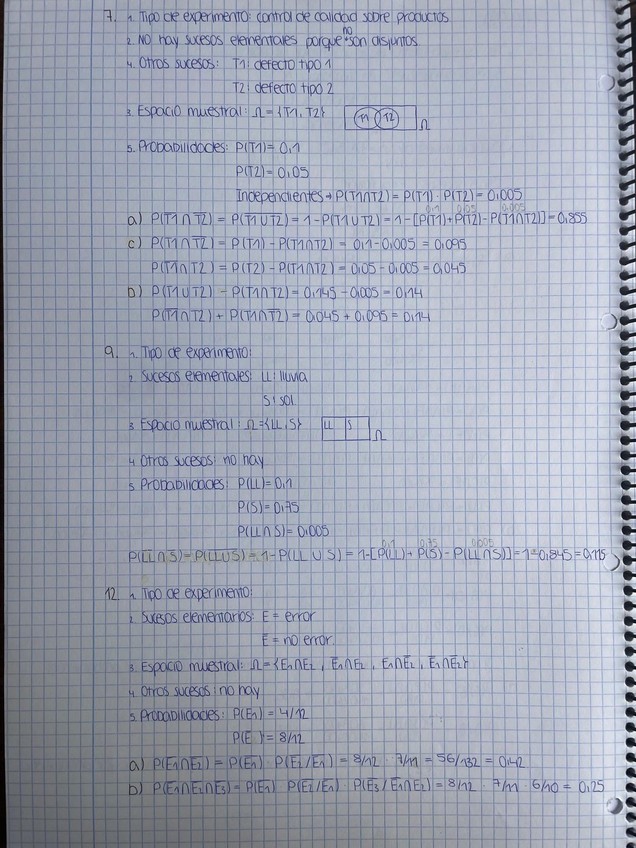 7. 1. Tipo de experimento: control de calidad sobre productos
2. NO hay sucesos elementales porque no son disjuntos
4. Otros sucesos: T1: defecto tipo 1
T2: defecto tipo 2
3. Espacio muestral: Ω = {T1, T2} T1 T2 Ω
5. Probabilidades: P(T1) = 0,1
P(T2) = 0,05
Independientes → P(T1∩T2) = P(T1) · P(T2) = 0,005
a) P(T̅1∩T̅2) = P(T̅1̅∪̅T̅2̅) = 1 - P(T1∪T2) = 1 - [P(T1) + P(T2) - P(T1∩T2)] = 0,855
0,1 0,05 0,005
c) P(T1∩T̅2) = P(T1) - P(T1∩T2) = 0,1 - 0,005 = 0,095
P(T̅1∩T2) = P(T2) - P(T1∩T2) = 0,05 - 0,005 = 0,045
b) P(T1∪T2) - P(T1∩T2) = 0,145 - 0,005 = 0,14
P(T̅1∩T2) + P(T1∩T̅2) = 0,045 + 0,095 = 0,14
9. 1. Tipo de experimento:
2. Sucesos elementales: LL: lluvia
S: sol
3. Espacio muestral: Ω = {LL, S} LL S Ω
4. Otros sucesos: no hay
5. Probabilidades: P(LL) = 0,1
P(S) = 0,75
P(LL∩S) = 0,005
P(L̅L̅∩S̅) = P(L̅L̅∪̅S̅) = 1 - P(LL∪S) = 1 - [P(LL) + P(S) - P(LL∩S)] = 1 - 0,845 = 0,115
0,1 0,75 0,005
12. 1. Tipo de experimento:
2. Sucesos elementarios: E = error
E̅ = no error
3. Espacio muestral: Ω = {E1∩E2, E̅1∩E2, E1∩E̅2, E̅1∩E̅2}
4. Otros sucesos: no hay
5. Probabilidades: P(E1) = 4/12
P(E̅ ) = 8/12
a) P(E̅1∩E̅2) = P(E̅1) · P(E̅2/E̅1) = 8/12 · 7/11 = 56/132 = 0,42
b) P(E̅1∩E̅2∩E̅3) = P(E̅1) · P(E̅2/E̅1) · P(E̅3/E̅1∩E̅2) = 8/12 · 7/11 · 6/10 = 0,25